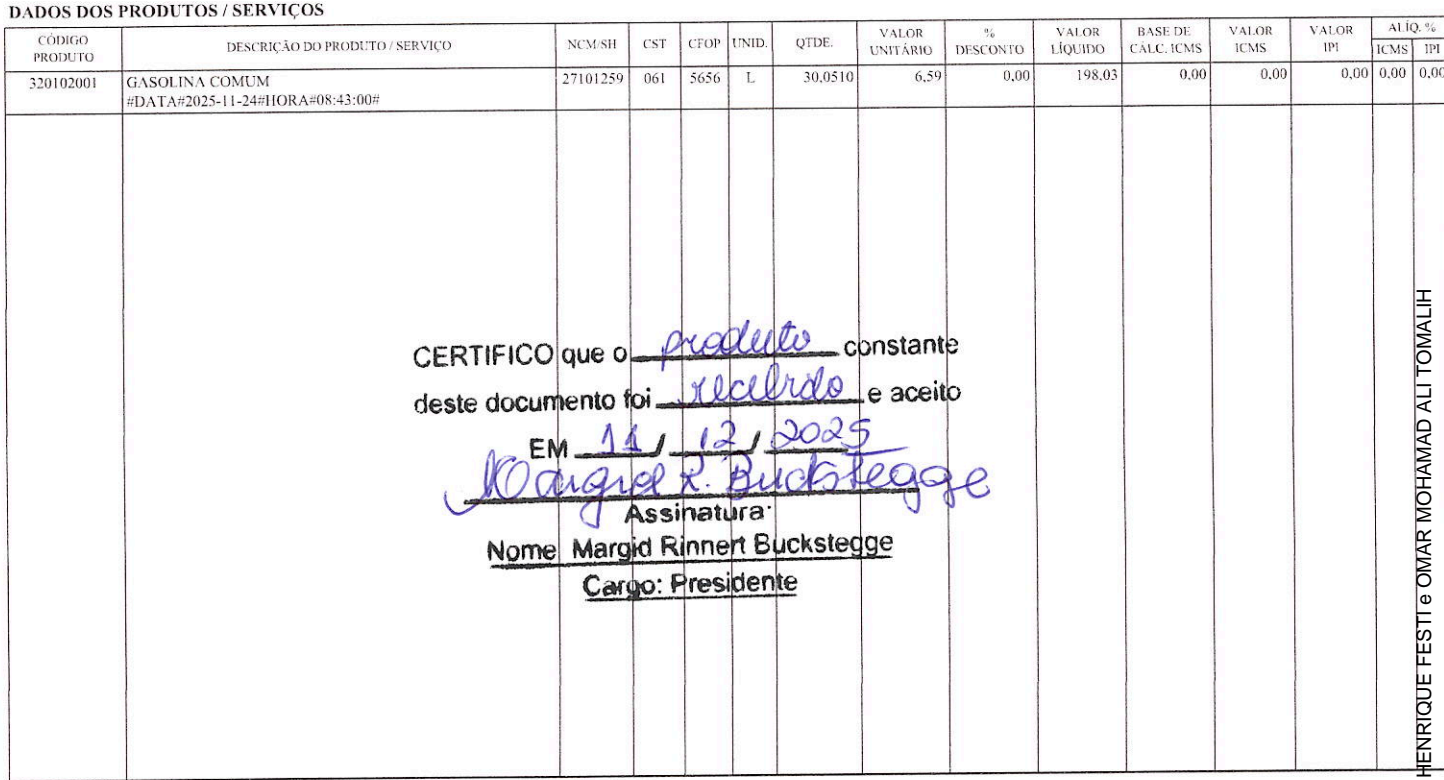 DADOS DOS PRODUTOS / SERVIÇOS
CÓDIGO PRODUTO DESCRIÇÃO DO PRODUTO / SERVIÇO NCM/SH CST CFOP UNID. QTDE. VALOR UNITÁRIO % DESCONTO VALOR LÍQUIDO BASE DE CÁLC. ICMS VALOR ICMS VALOR IPI ALÍQ. % ICMS IPI
320102001 GASOLINA COMUM 27101259 061 5656 L 30,0510 6,59 0,00 198,03 0,00 0,00 0,00 0,00 0,00
#DATA#2025-11-24#HORA#08:43:00#
CERTIFICO que o produto constante
deste documento foi recebido e aceito
EM 11 / 12 / 2025
Margid R. Buckstegge
Assinatura:
Nome Margid Rinnert Buckstegge
Cargo: Presidente
HENRIQUE FESTI e OMAR MOHAMAD ALI TOMALIH